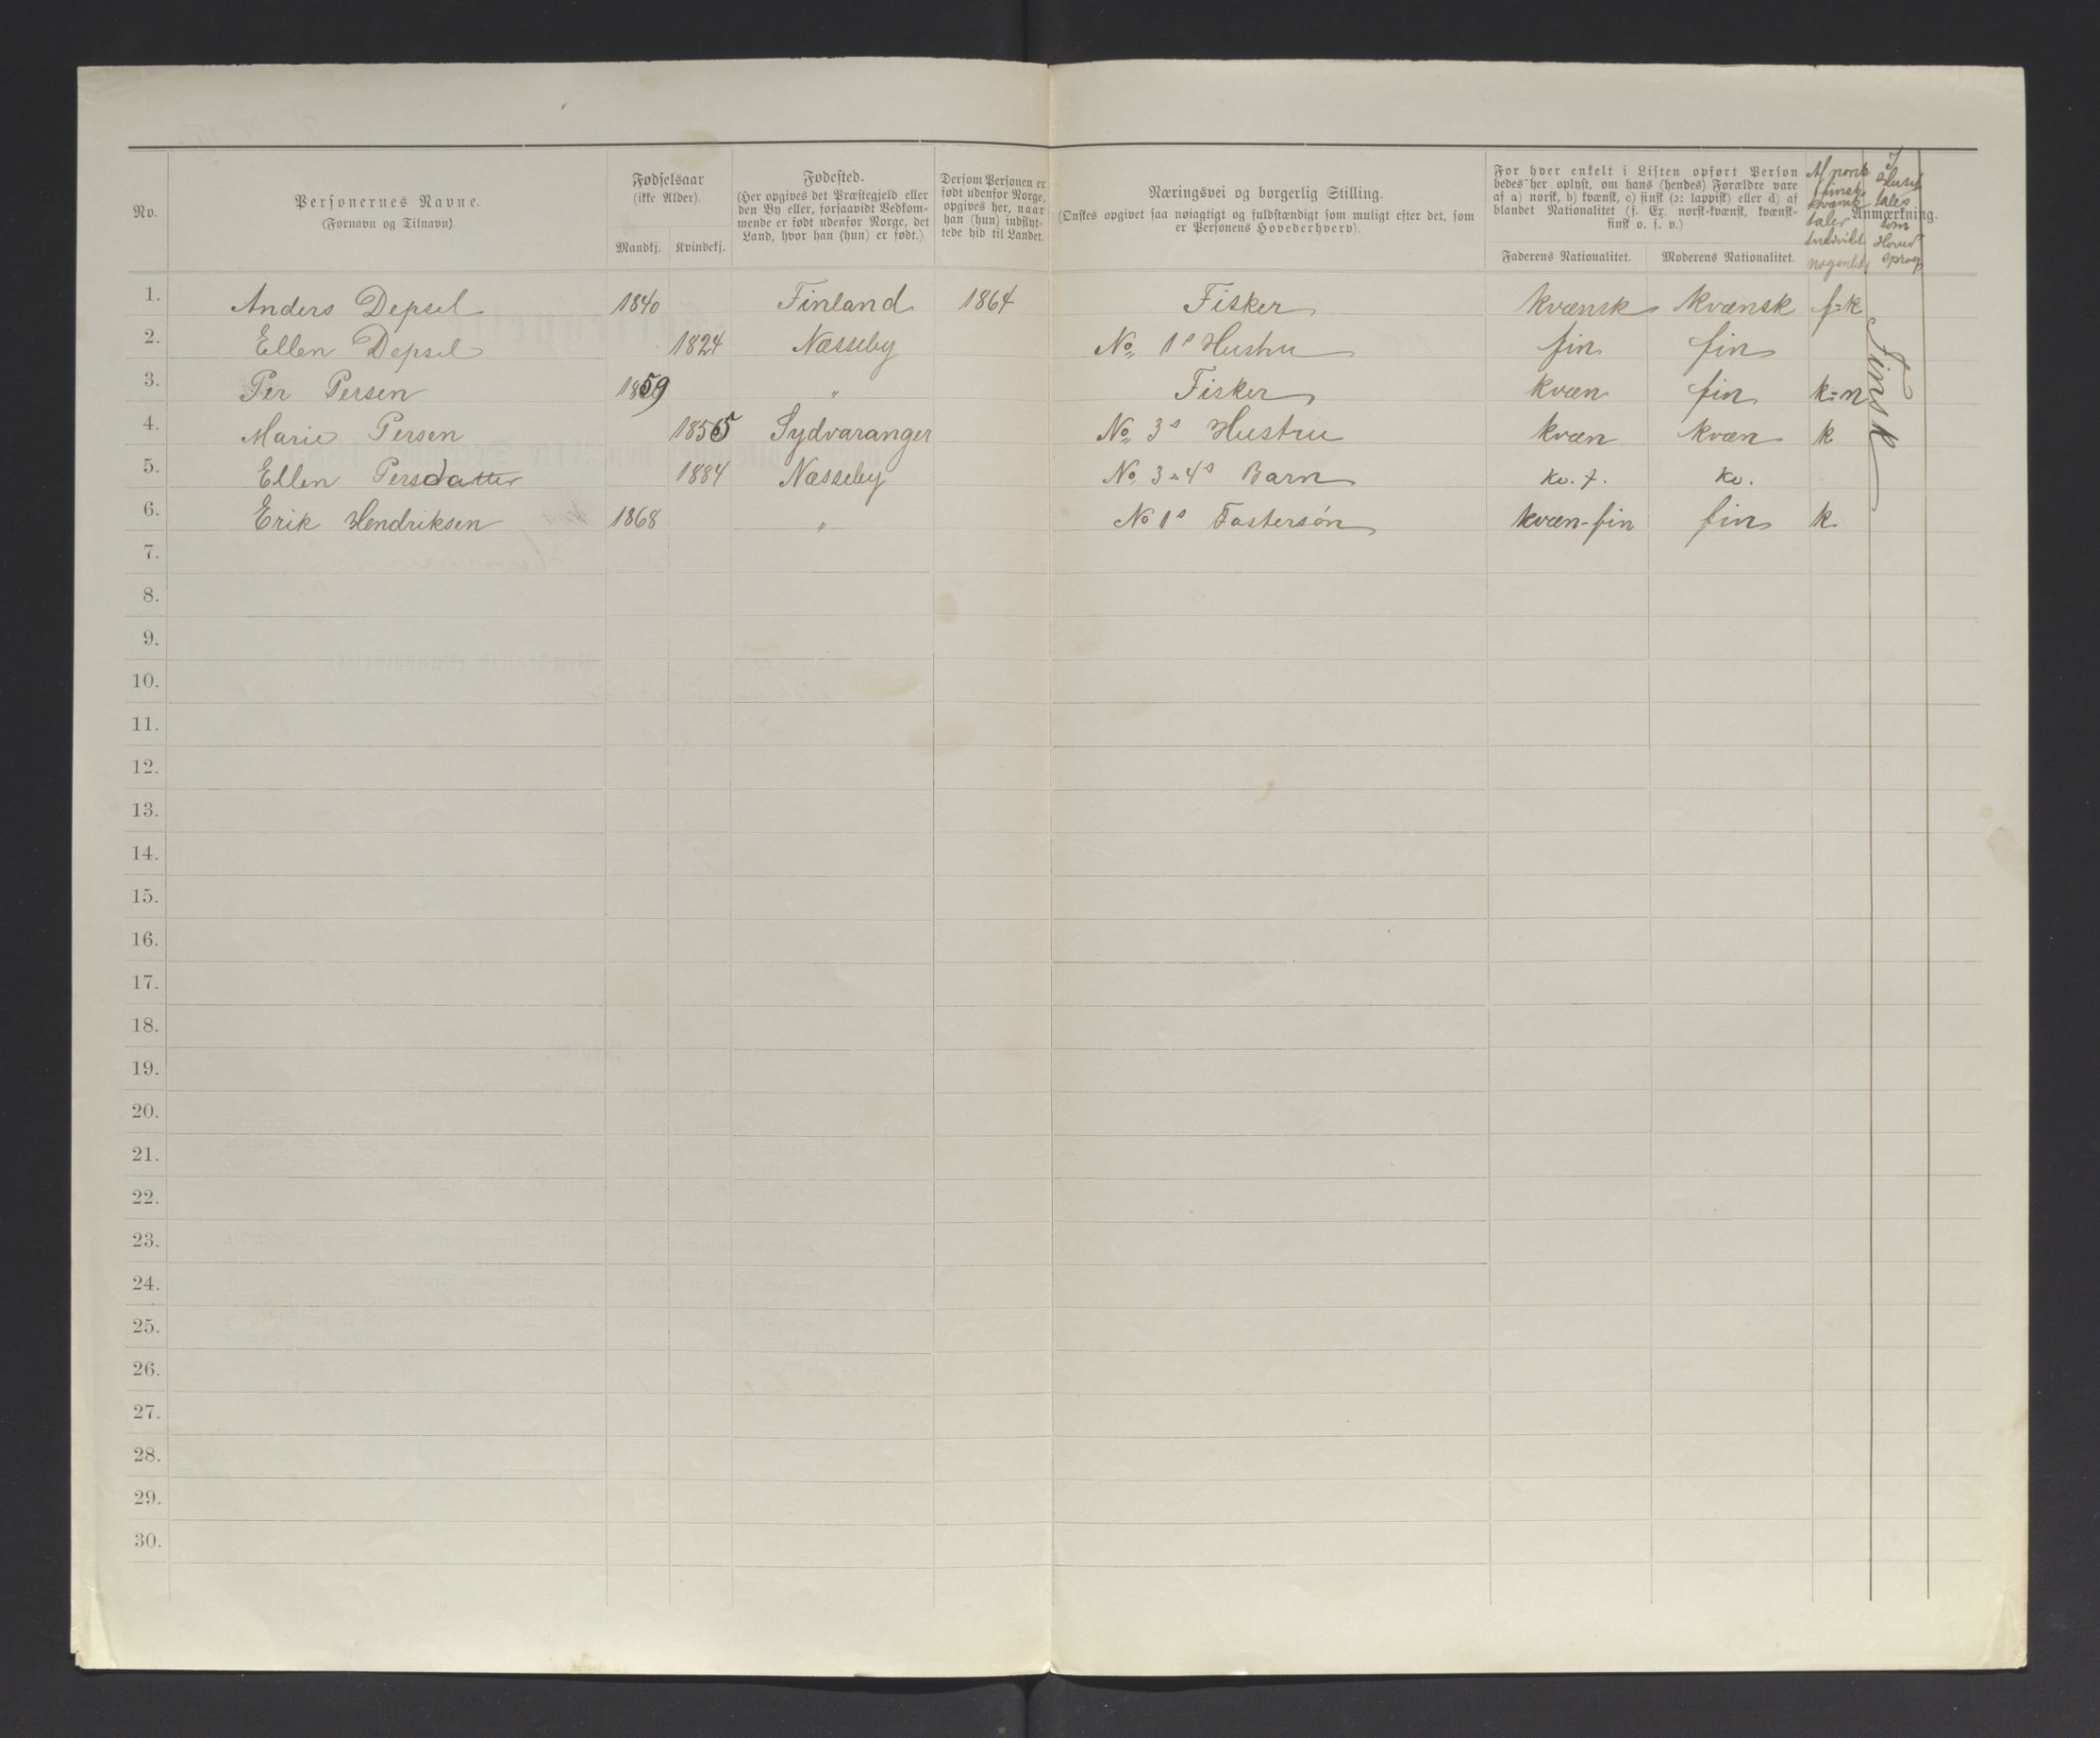 No.
Personernes Navne.
(Fornavn og Tilnavn)
Fødselsaar
(ikke Alder).
Mandkj. Kvindekj.
Fødested.
(Her opgives det Præstegjeld eller
den By eller, forsaavidt Vedkom-
mende er født udenfor Norge, det
Land, hvor han (hun) er født.)
Dersom Personen er
født udenfor Norge,
opgives her, naar
han (hun) indflyt-
tede hid til Landet.
Næringsvei og borgerlig Stilling.
(Ønskes opgivet saa nøiagtigt og fuldstændigt som muligt efter det, som
er Personens Hovederhverv).
For hver enkelt i Listen opført Person
bedes her oplyst, om hans (hendes) Forældre vare
af a) norsk, b) kvænsk, c) finsk (ɔ: lappisk) eller d) af
blandet Nationalitet (f. Ex. norsk-kvænsk, kvænsk-
finsk o. s. v.)
Faderens Nationalitet. Moderens Nationalitet.
Anmærkning.
Af norsk
finsk
kvænsk
taler
Individet
nogenledes
I
Huset
tales
som
Hoved
sprog
1. Anders Depsel 1840 Finland 1864 Fisker kvænsk kvænsk f=k
2. Ellen Depsel 1824 Næsseby No 1s Hustru fin fin
3. Per Persen 1859 " Fisker kvæn fin k=n
4. Marie Persen 1855 Sydvaranger No 3s Hustru kvæn kvæn k
5. Ellen Persdatter 1884 Næsseby No 3 & 4s Barn kv. f. kv.
6. Erik Hendriksen 1868 " No 1s Fostersøn kvæn-fin fin k
finsk
7.
8.
9.
10.
11.
12.
13.
14.
15.
16.
17.
18.
19.
20.
21.
22.
23.
24.
25.
26.
27.
28.
29.
30.